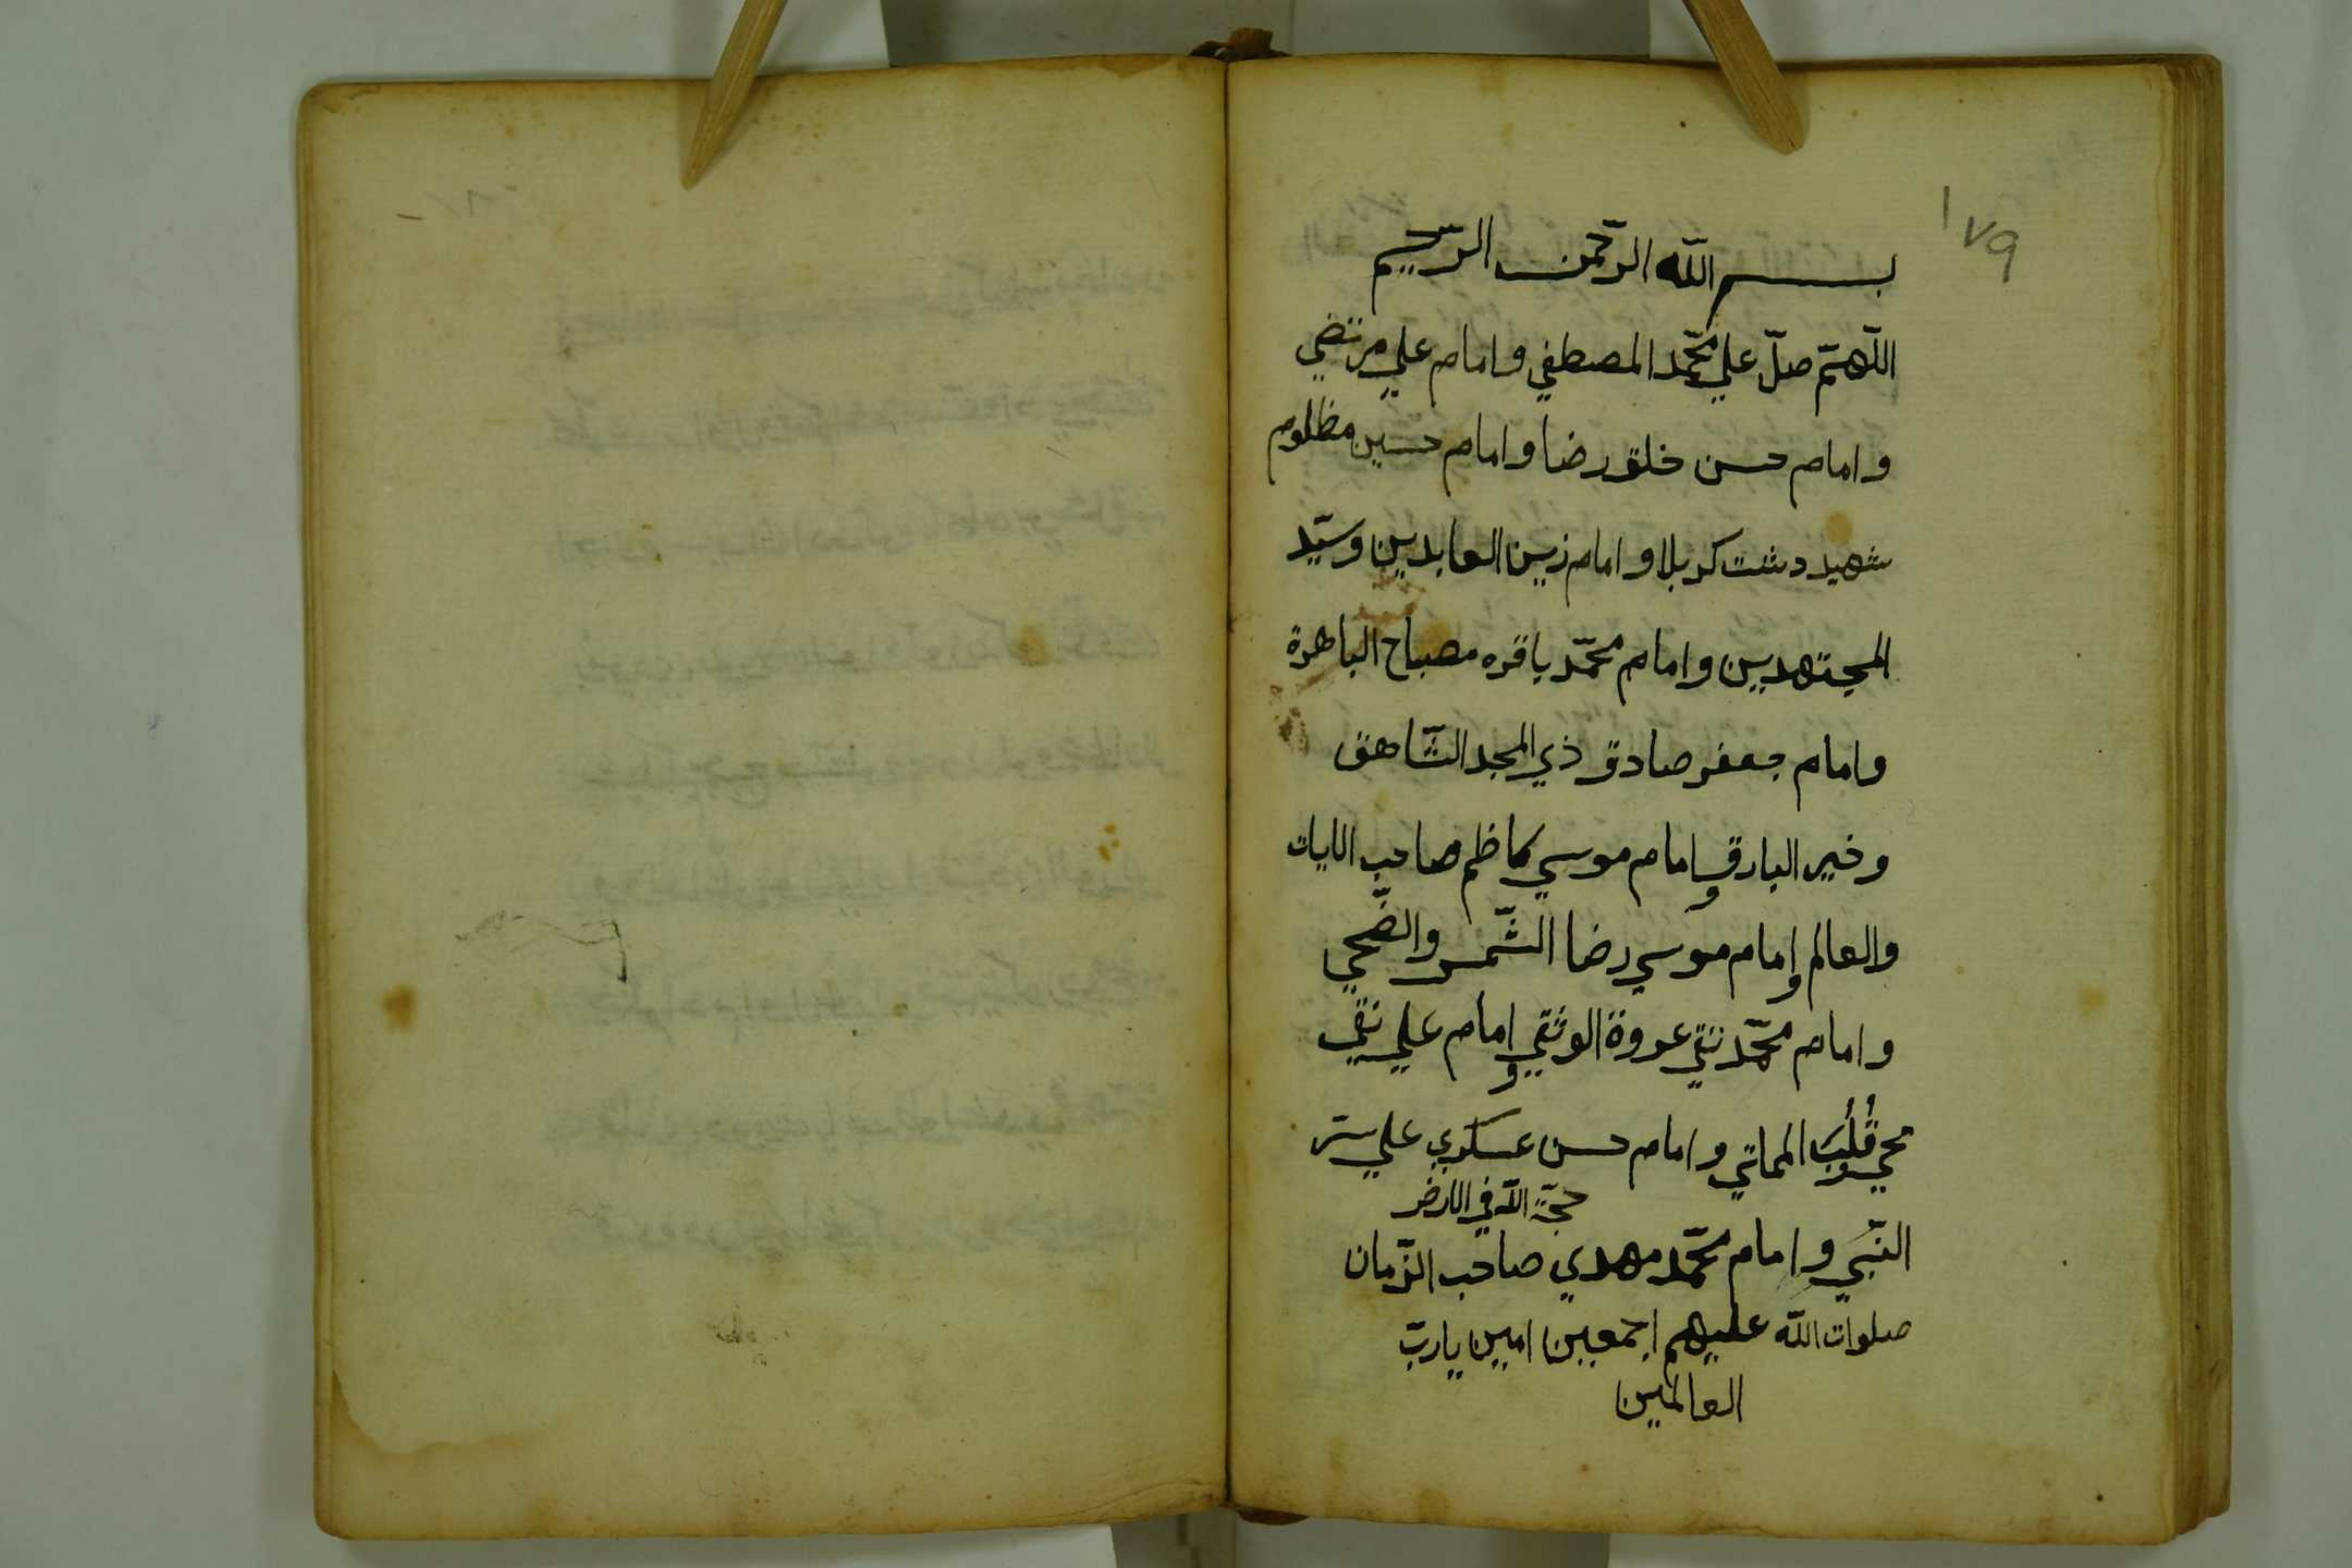 ١٧٩
بسم الله الرّحمن الرّحيم
اللّهمّ صلّ علي محمّد المصطفي و امام علي مرتضي
و امام حسن خلق رضا و امام حسين مظلوم
شهيد دشت كربلا و امام زين العابدين و سيّد
المجتهدين و امام محمّد باقره مصباح الباهرة
و امام جعفر صادق ذي المجد الشّاهق
و خير البارق و امام موسي كاظم صاحب الايات
والعالم و امام موسي رضا الشّمس والضّحي
و امام محمّد تقي عروة الوثقي و امام علي نقي
محي قلب المماتي و امام حسن عسكري علي ستر
حجّة الله في الارض
النّبي و امام محمّد مهدي صاحب الزّمان
صلوات الله عليهم اجمعين امين يا ربّ
العالمين